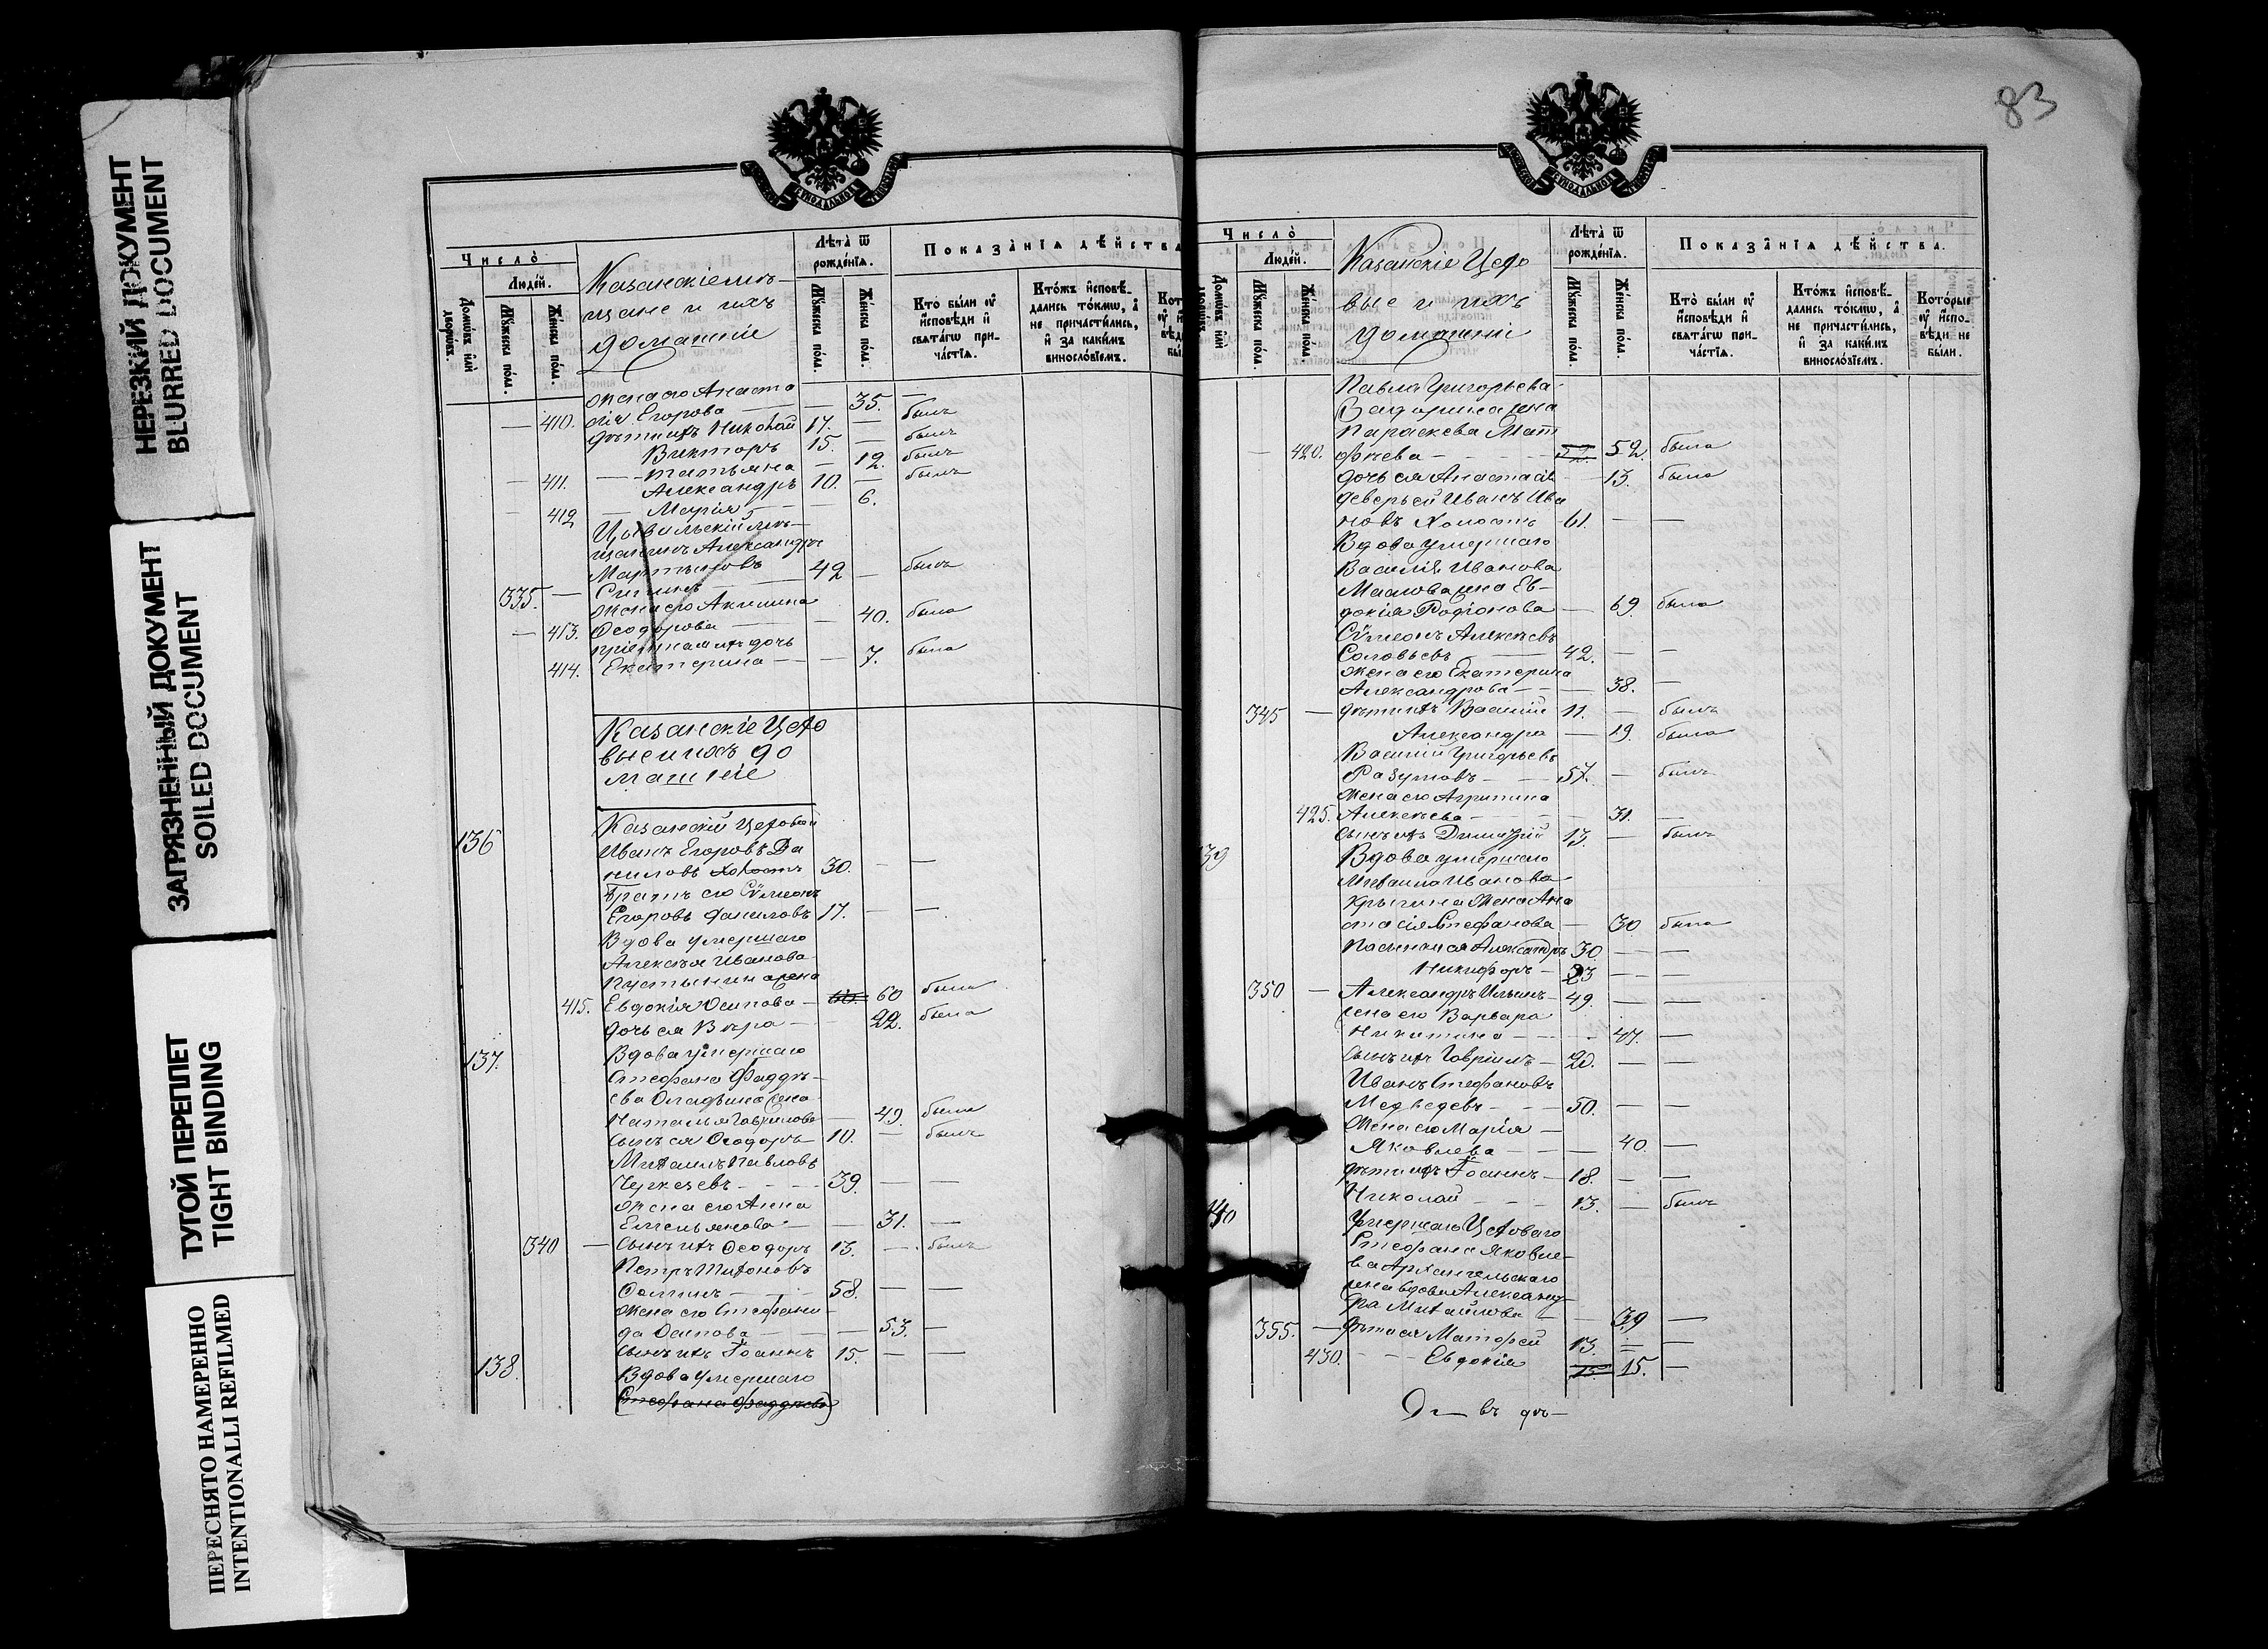 НЕРЕЗКИЙ ДОКУМЕНТ
BLURRED DOCUMENT
ЗАГРЯЗНЕННЫЙ ДОКУМЕНТ
SOILED DOCUMENT
ТУГОЙ ПЕРЕПЛЕТ
TIGHT BINDING
ПЕРЕСНЯТО НАМЕРЕННО
INTENTIONALLI REFILMED
Число̀
Людей.
Домѡвъ и҆лѝ дворѡвъ.
Мꙋжеска пола.
Женска пола.
Казанскіе мѣ-
щане и ихъ
домашніе
Лѣта̀ ѿ рожденїѧ.
Мꙋжеска пола.
Женска пола.
Показанїѧ дѣйства
Кто̀ были оу҆
и҆сповѣди и҆
свѧтагѡ при-
частїѧ.
Ктожъ и҆сповѣ-
дались токмѡ, а҆
не причастились,
и҆ за какимъ
винословїемъ.
жена его Анаста
410. сія Егорова 35.
дѣти ихъ Николай 17. — былъ
Викторъ 15. — былъ
411. Татьяна — 12. былъ
Александръ 10. — былъ
412 Марія — 6.
Цывильскій мѣ-
щанинъ Александръ
Мартыновъ 42 — былъ
335. —
жена его Акилина
413. Ѳеодорова — 40. была
пріемная ихъ дочь
414. Екатерина — 7. была
Казанскіе Цехо
вые и ихъ до
машніе
136 Казанскій Цеховой
Иванъ Егоровъ Да
ниловъ Холостъ 30. — —
Братъ его Сѵмеонъ
Егоровъ Даниловъ 17. — —
Вдова умершаго
Алексѣя Иванова
Пустынина жена
415. Евдокія Осипова — 60. 60 была
дочь ея Вѣра — 22. была
137. Вдова умершаго
Стефана Фаддѣ-
ева жена
Наталья Гаврилова — 49. была
сынъ ея Ѳеодоръ 10. — былъ
Михаилъ Павловъ
39. — —
жена его Анна
Емельянова — 31. —
340 — сынъ ихъ Ѳеодоръ 13. — былъ
Петръ Тихоновъ
58. — —
жена его Стефани-
да Осипова — 53. —
сынъ ихъ Іоаннъ 15. — —
138. Вдова умершаго
(Стефана Фаддѣева)
83
Число̀
Людей.
Домѡвъ и҆лѝ дворѡвъ.
Мꙋжеска пола.
Женска пола.
Казанскіе Цехо
вые и ихъ
домашніе
Лѣта̀ ѿ рожденїѧ.
Мꙋжеска пола.
Женска пола.
Показанїѧ дѣйства.
Кто̀ были оу҆
и҆сповѣди и҆
свѧтагѡ при-
частїѧ.
Ктожъ и҆сповѣ-
дались токмѡ, а҆
не причастились,
и҆ за какимъ
винословїемъ.
Которые
оу҆ и҆спо-
вѣди не
были.
Павла Григорьева
жена
Параскева Мат
420. фѣева — 52. 52. была
дочь ея Анастасія — 13. была
деверь ей Иванъ Ива
новъ Холостъ 61. — —
Вдова умершаго
Василія Иванова
Маслова жена Ев-
докія Родіонова — 69. была
Сѵмеонъ Алексѣевъ
Соловьевъ 42. — —
жена его Екатерина
Александрова — 38. —
345 — дѣти ихъ Василій 11. — былъ
Александра — 19. была
Василій Григорьевъ
Разумовъ — 57. — былъ
жена его Агрипина
425. Алексѣева — 31. —
сынъ ихъ Димитрій 13. — былъ
139 Вдова умершаго
Михаила Иванова
жена Ана
стасія Стефанова — 30 была
Пасынки ея Александръ 30. — —
Никифоръ — 23 — —
350 — Александръ Ильинъ 49. — —
жена его Варвара
Никитина — 47. —
сынъ ихъ Гавріилъ — 20. — —
Иванъ Стефановъ
Медведевъ — 50. — —
жена его Марія
Яковлева — 40. —
дѣти ихъ Іоаннъ — 18. — —
Николай — 13. — былъ
140 Умершаго Цеховаго
Стефана Яковле-
ва Архангельскаго
жена вдова Александ-
ра Михайлова — 39 —
355. — дѣти ея Матфей 13. — —
430. — Евдокія 15. 15. —